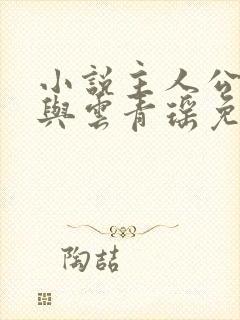 小說主人公
與雲青瑤免
陶喆